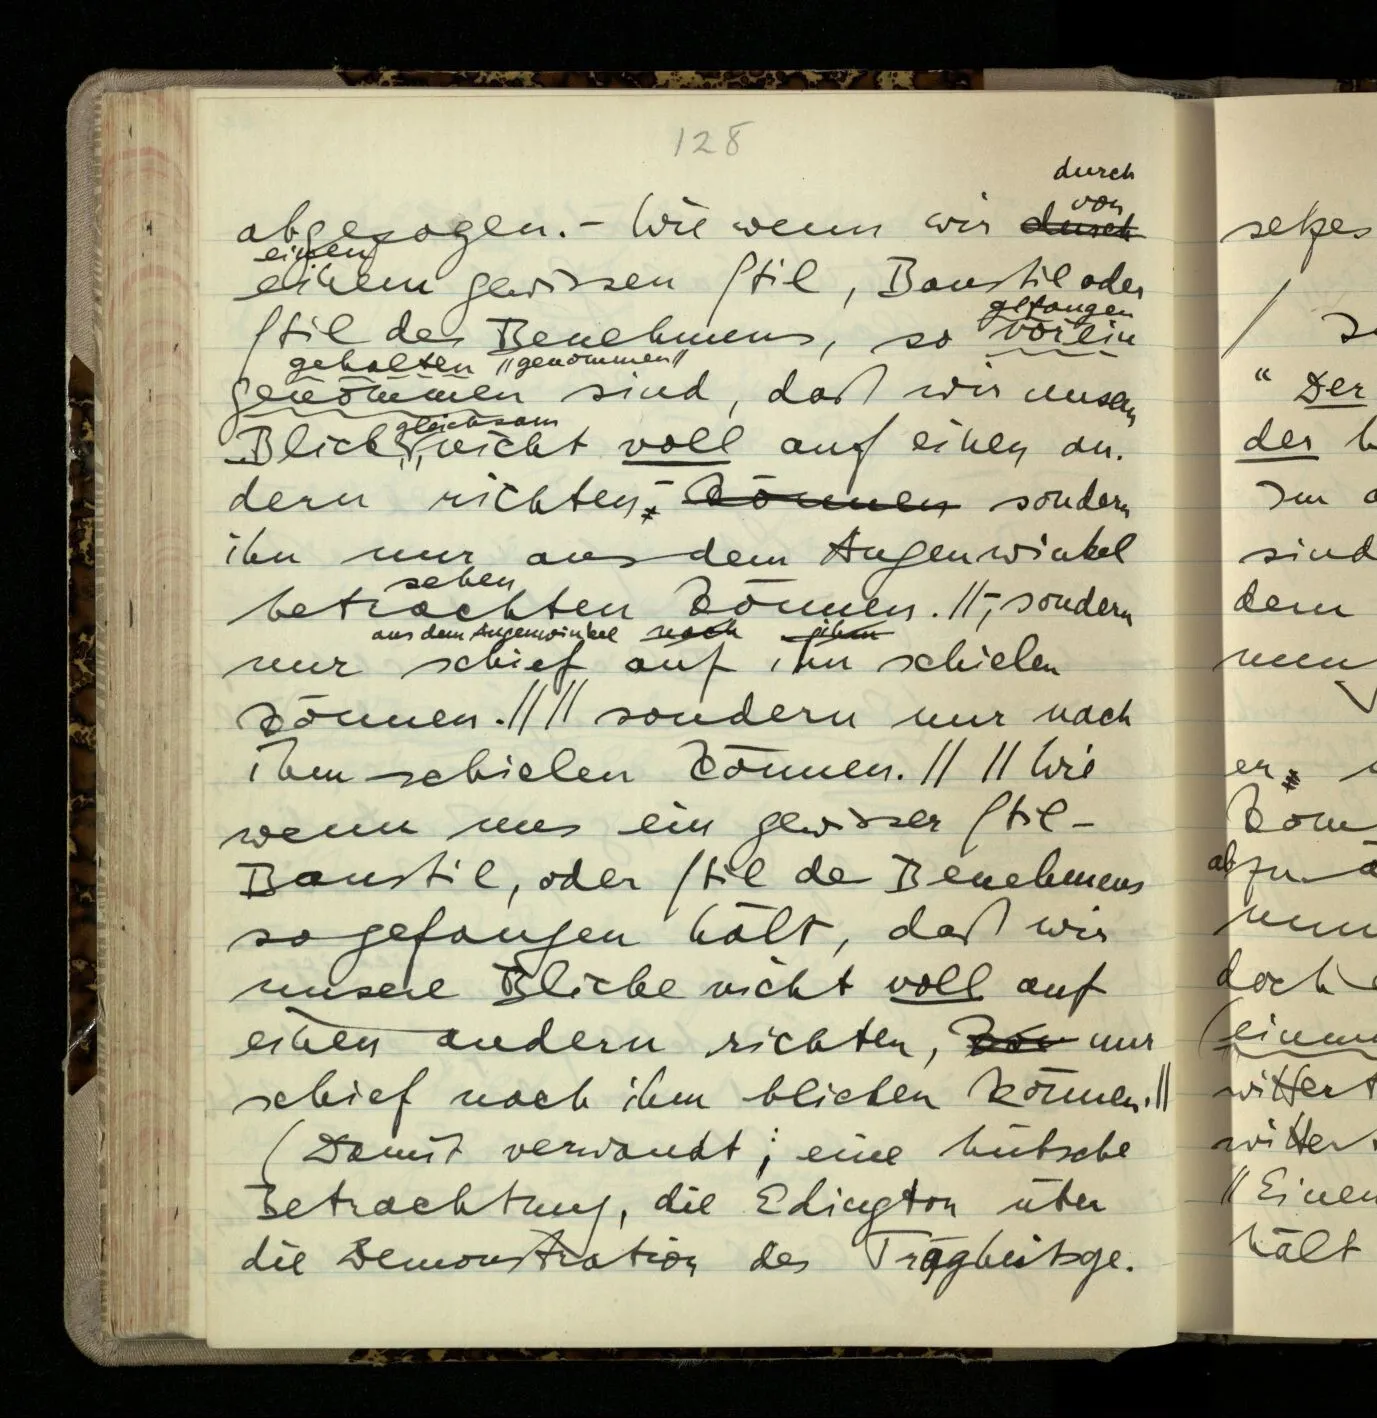 128
durch
von
abgezogen. – Wie wenn wir durch
einen
einem gewissen Stil, Baustil oder
gefangen
Stil des Benehmens, so vorein
gehalten //genommen//
genommen sind, daß wir unsern
gleichsam
Blick nicht voll auf einen an-
dern richten, – können sondern
ihn nur aus dem Augenwinkel
sehen
betrachten können. // –, sondern
aus dem Augenwinkel nach ihm
nur schief auf ihn schielen
können. // // sondern nur nach
ihm schielen können. // // Wie
wenn uns ein gewisser Stil –
Baustil, oder Stil des Benehmens
so gefangen hält, daß wir
unsere Blicke nicht voll auf
einen andern richten, kön nur
schief nach ihm blicken können. //
(Damit verwandt; eine hübsche
Betrachtung, die Edington über
die Demonstration des Trägheitsge-
setzes
/
" Der
der
Im
sind
dem
er
abzu
doch
wittert
wittert
// Einen
hält